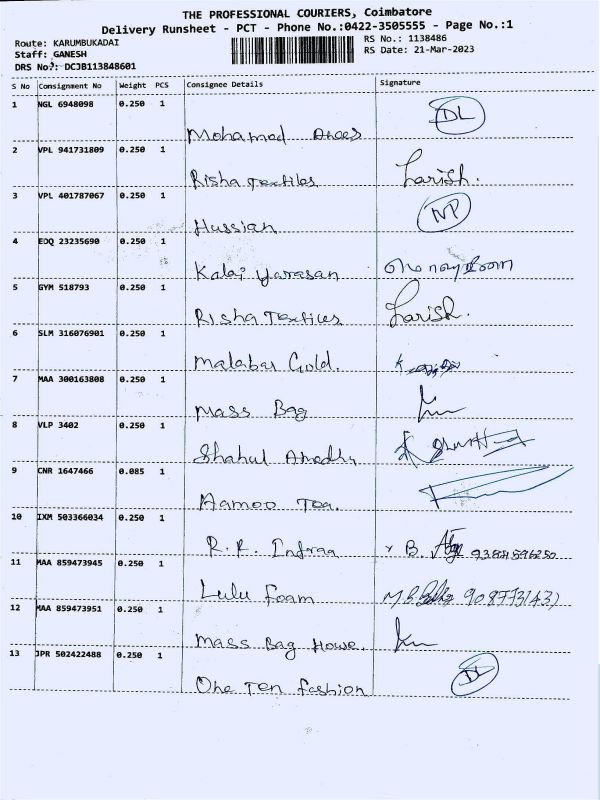 THE PROFESSIONAL COURIERS, Coimbatore
Delivery Runsheet - PCT - Phone No.:0422-3505555 - Page No.:1
Route: KARUMBUKADAI RS No.: 1138486
Staff: GANESH RS Date: 21-Mar-2023
DRS No.: DCJB113848601
S No Consignment No Weight PCS Consignee Details Signature
1 NGL 6948098 0.250 1
Mohamed DL
2 VPL 941731809 0.250 1
Risha Textiles Harish.
3 VPL 401787067 0.250 1
Hussian NP
4 EDQ 23235690 0.250 1
Kalai yarasan
5 GYM 518793 0.250 1
Risha Textiles Harish.
6 SLM 316076901 0.250 1
Malabar Gold.
7 MAA 300163808 0.250 1
Mass Bag
8 VLP 3402 0.250 1
Shahul
9 CNR 1647466 0.085 1
Aamoo Tea.
10 IXM 503366034 0.250 1
R.R. B.
11 MAA 859473945 0.250 1
Lulu Foam
12 MAA 859473951 0.250 1
Mass Bag
13 JPR 502422488 0.250 1
One Ten fashion DL